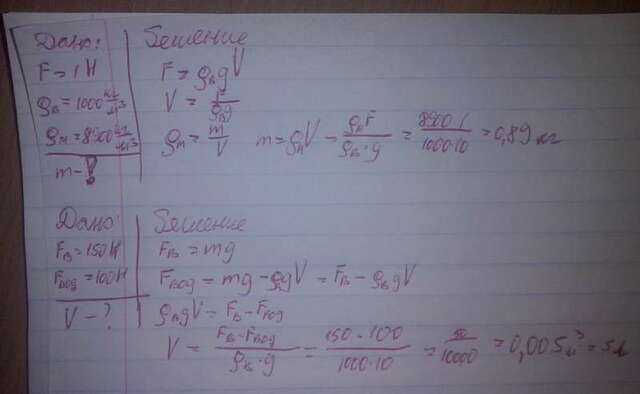 Дано:
F = 1 Н
ρв = 1000 кг/м³
ρм = 8900 кг/м³
m - ?
Решение
F = ρв g V
V = F/ρв g
ρм = m/V   m = ρм V - ρм F/ρв · g = 8900 · 1/1000 · 10 = 0,89 кг
Дано:
Fв = 150 Н
Fвод = 100 Н
V - ?
Решение
Fв = mg
Fвод = mg - ρв g V = Fв - ρв g V
ρв g V = Fв - Fвод
V = Fв - Fвод/ρв · g = 150 - 100/1000 · 10 = 50/10000 = 0,005 м³ = 5 л